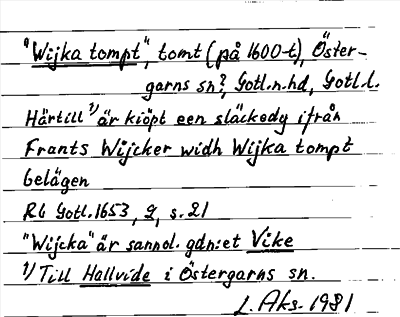 "Wijka tompt", tomt (på 1600-t), Öster-
garns sn?, Gotl.n.hd, Gotl.l.
Härtill 1) är kiöpt een släckedy ifrån
Frants Wijcker widh Wijka tompt
belägen
RG Gotl. 1653, 2, s. 21
"Wijcka" är sannol. gdn:et Vike
1) Till Hallvide i Östergarns sn.
L. Aks. 1981